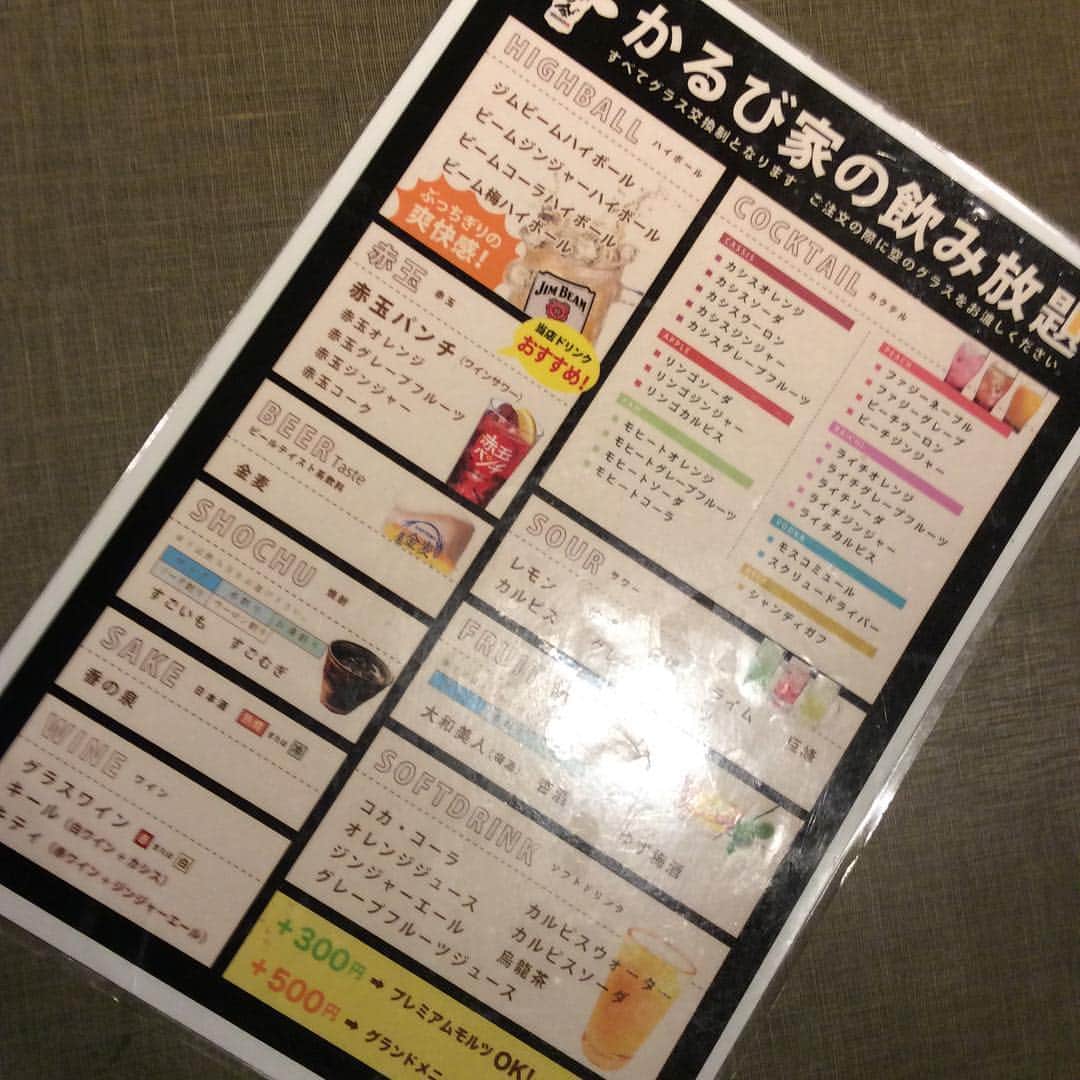 かるび家の飲み放題
すべてグラス交換制となります。ご注文の際に空のグラスをお渡しください。
HIGHBALL ハイボール
ジムビームハイボール
ビームジンジャーハイボール
ビームコーラハイボール
ビーム梅ハイボール
ぶっちぎりの
爽快感!
JIM BEAM
赤玉 赤玉
赤玉パンチ(ワインサワー)
赤玉オレンジ
赤玉グレープフルーツ
赤玉ジンジャー
赤玉コーク
当店ドリンク
おすすめ!
赤玉
パンチ
BEER Taste
ビールテイスト系飲料
金麦
金麦
SHOCHU 焼酎
すごいも すごむぎ
SAKE 日本酒
香の泉
WINE ワイン
グラスワイン 赤または白
キール(白ワイン+カシス)
キティ(赤ワイン+ジンジャーエール)
COCKTAIL カクテル
CASSIS
カシスオレンジ
カシスソーダ
カシスウーロン
カシスジンジャー
カシスグレープフルーツ
APPLE
リンゴソーダ
リンゴジンジャー
リンゴカルピス
モヒートオレンジ
モヒートグレープフルーツ
モヒートソーダ
モヒートコーラ
PEACH
ファジーネーブル
ファジーグレープ
ピーチウーロン
ピーチジンジャー
ライチオレンジ
ライチグレープフルーツ
ライチソーダ
ライチジンジャー
ライチカルピス
VODKA
モスコミュール
スクリュードライバー
シャンディガフ
SOUR サワー
レモン ライム
カルピス 巨峰
FRUIT
大和美人 杏酒 ゆず梅酒
SOFTDRINK ソフトドリンク
コカ・コーラ
オレンジジュース
ジンジャーエール
グレープフルーツジュース
カルピスウォーター
カルピスソーダ
烏龍茶
+300円➡プレミアムモルツOK!
+500円➡グランドメニ